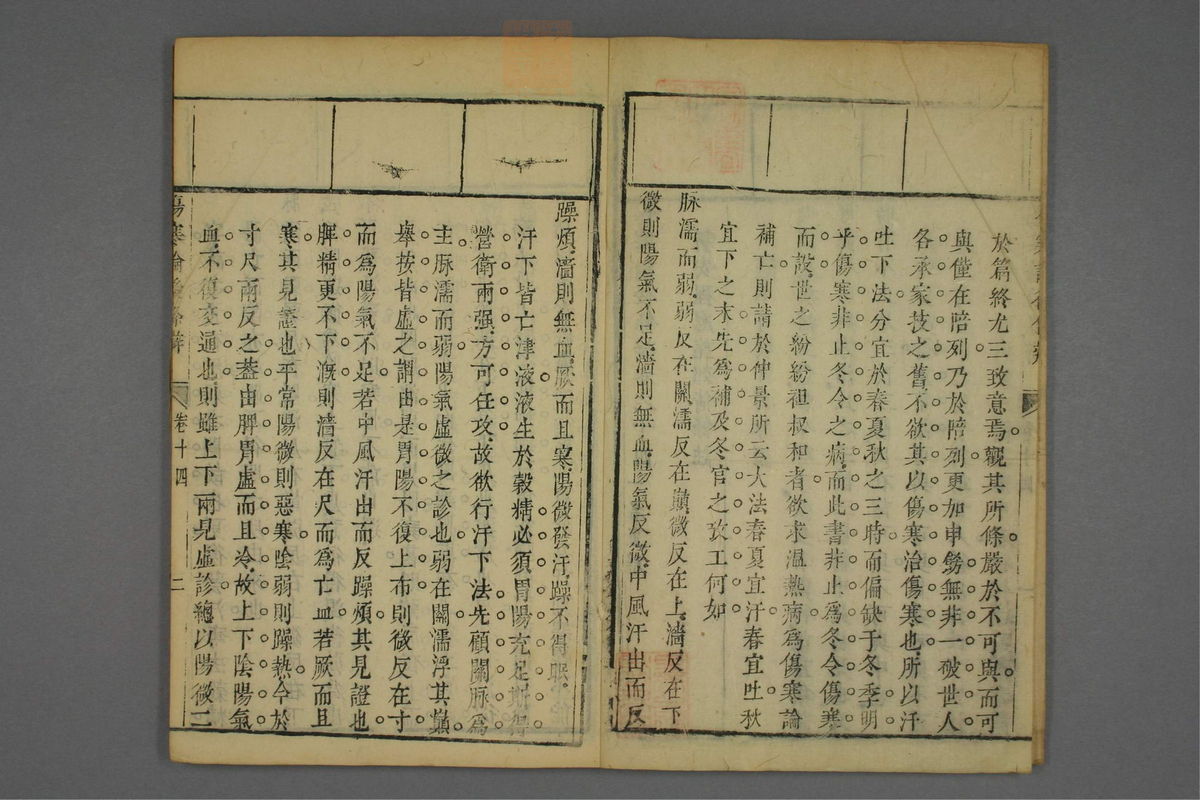 於篇終尤三致意焉觀其所條嚴於不可與而可
與僅在陪列乃於陪列更加申飭無非一破世人
各承家技之舊不欲其以傷寒治傷寒也所以汗
吐下法分宜於春夏秋之三時而偏缺于冬季明
乎傷寒非止冬令之病而此書非止為冬令傷寒
而設世之紛紛祖叔和者欲求溫熱病為傷寒論
補亡則請於仲景所云大法春夏宜汗春宜吐秋
宜下之末先為補及冬官之攷工何如
脉濡而弱弱反在關濡反在巔微反在上濇反在下
微則陽氣不足濇則無血陽氣反微中風汗出而反
躁煩濇則無血厥而且寒陽微發汗躁不得眠
汗下皆亡津液液生於穀精必須胃陽充足斯得
營衛兩强方可任攻故欲行汗下法先顧關脉為
主脉濡而弱陽氣虛微之診也弱在關濡浮其巔
舉按皆虛之謂由是胃陽不復上布則微反在寸
而為陽氣不足若中風汗出而反躁煩其見證也
脾精更不下溉則濇反在尺而為亡血若厥而且
寒其見證也平常陽微則惡寒陰弱則躁熱今於
寸尺兩反之葢由脾胃虛而且冷故上下陰陽氣
血不復交通也則雖上下兩見虛診總以陽微二
傷寒論後條辨
卷十四
二